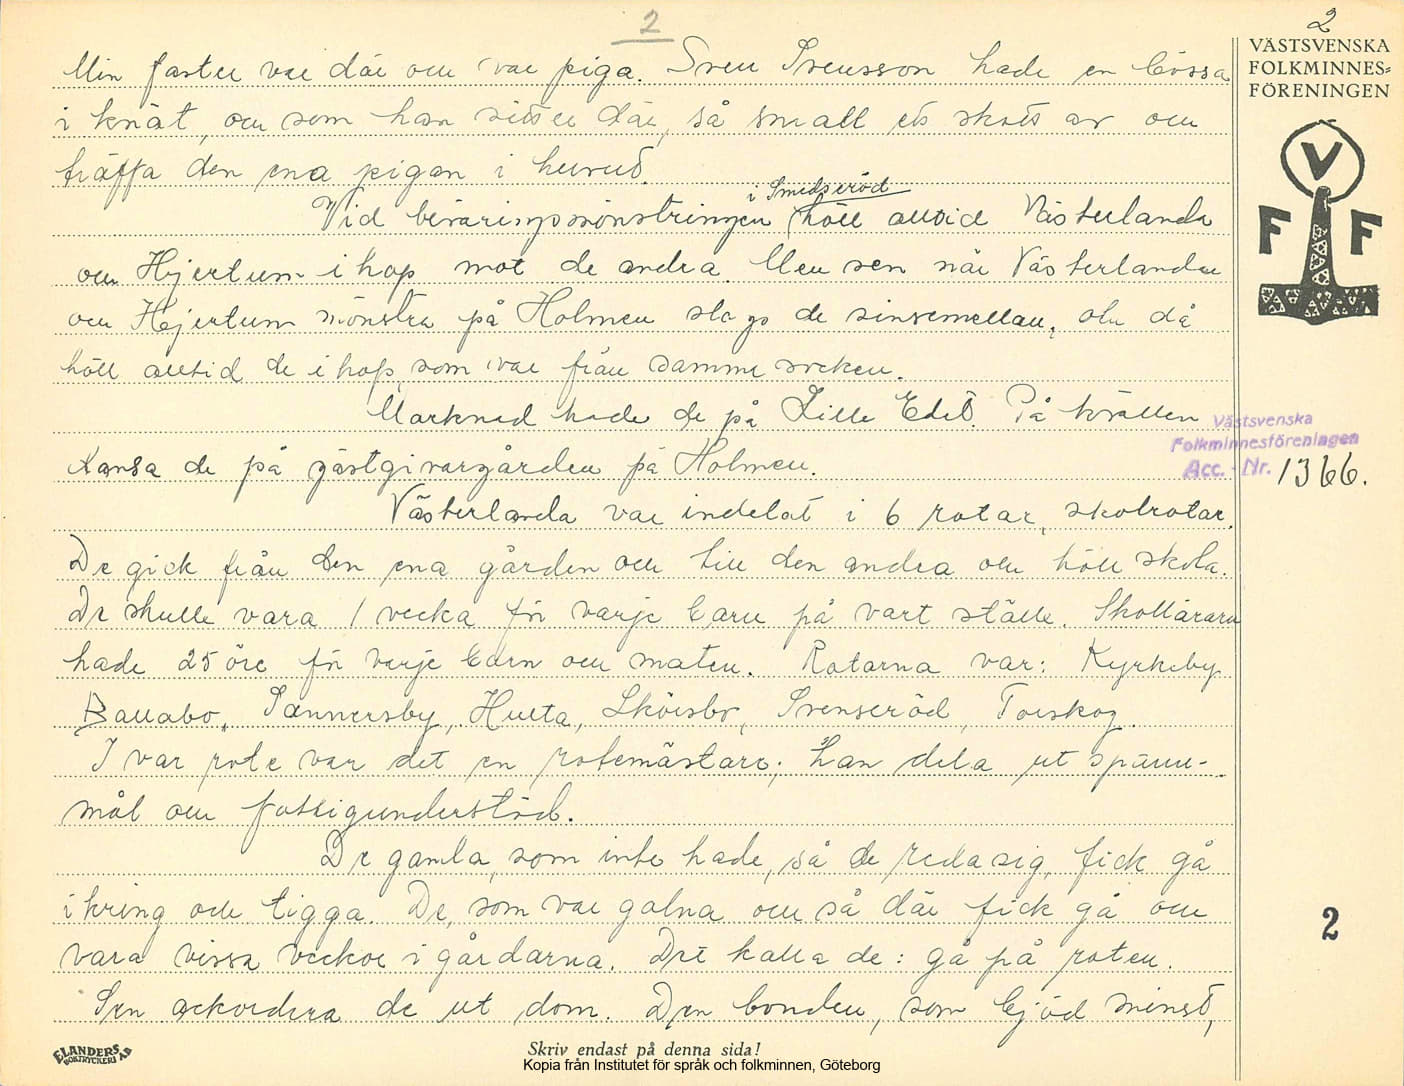 2
2
VÄSTSVENSKA
FOLKMINNES=
FÖRENINGEN
V
F F
Min faster var där och var piga. Sven Svensson hade en bössa
i knät, och som han sitter där, så small ett skott av och
träffa den ena pigan i huvud.
i Smedseröd
Vid beväringsmönstringen höll alltid Västerlanda
och Hjertum ihop mot de andra. Men sen när Västerlanda
och Hjertum mönstra på Holmen slogs de sinsemellan, och då
höll alltid de ihop, som var från samme socken.
Marknad hade de på Lille Edet. På kvällen
dansa de på gästgivargården på Holmen.
Västsvenska
Folkminnesföreningen
Acc. - Nr. 1366.
Västerlanda var indelat i 6 rotar, skolrotar.
De gick från den ena gården och till den andra och höll skola.
De skulle vara 1 vecka för varje barn på vart ställe. Skollärarn
hade 25 öre för varje barn och maten. Rotarna var: Kyrkeby
Ballabo, Sannersby, Hulta, Skörsbo, Svenseröd, Torskog
I var rote var det en rotemästare; han dela ut spann-
mål och fattigunderstöd.
De gamla, som inte hade, så de reda sig, fick gå
ikring och tigga. De, som var galna och så där fick gå och
vara vissa veckor i gårdarna. Det kalla de: gå på roten.
Sen ackordera de ut dom. Den bonden, som bjöd minst,
2
ELANDERS
BOKTRYCKERI AB
Skriv endast på denna sida!
Kopia från Institutet för språk och folkminnen, Göteborg